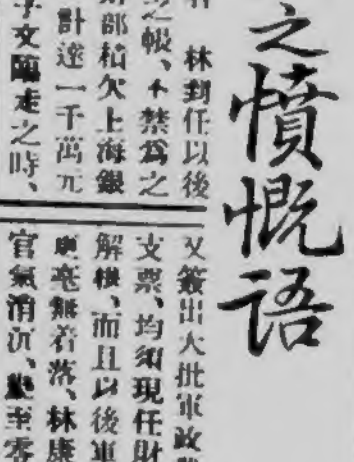 之憤慨語
林到任以後
之報、不禁爲之
部積欠上海銀
計達一千萬元
子文臨走之時、
又簽出大批軍政
支票、均須現任財
解、而且以後軍
毫無着落、林康
官氣消沉、至零